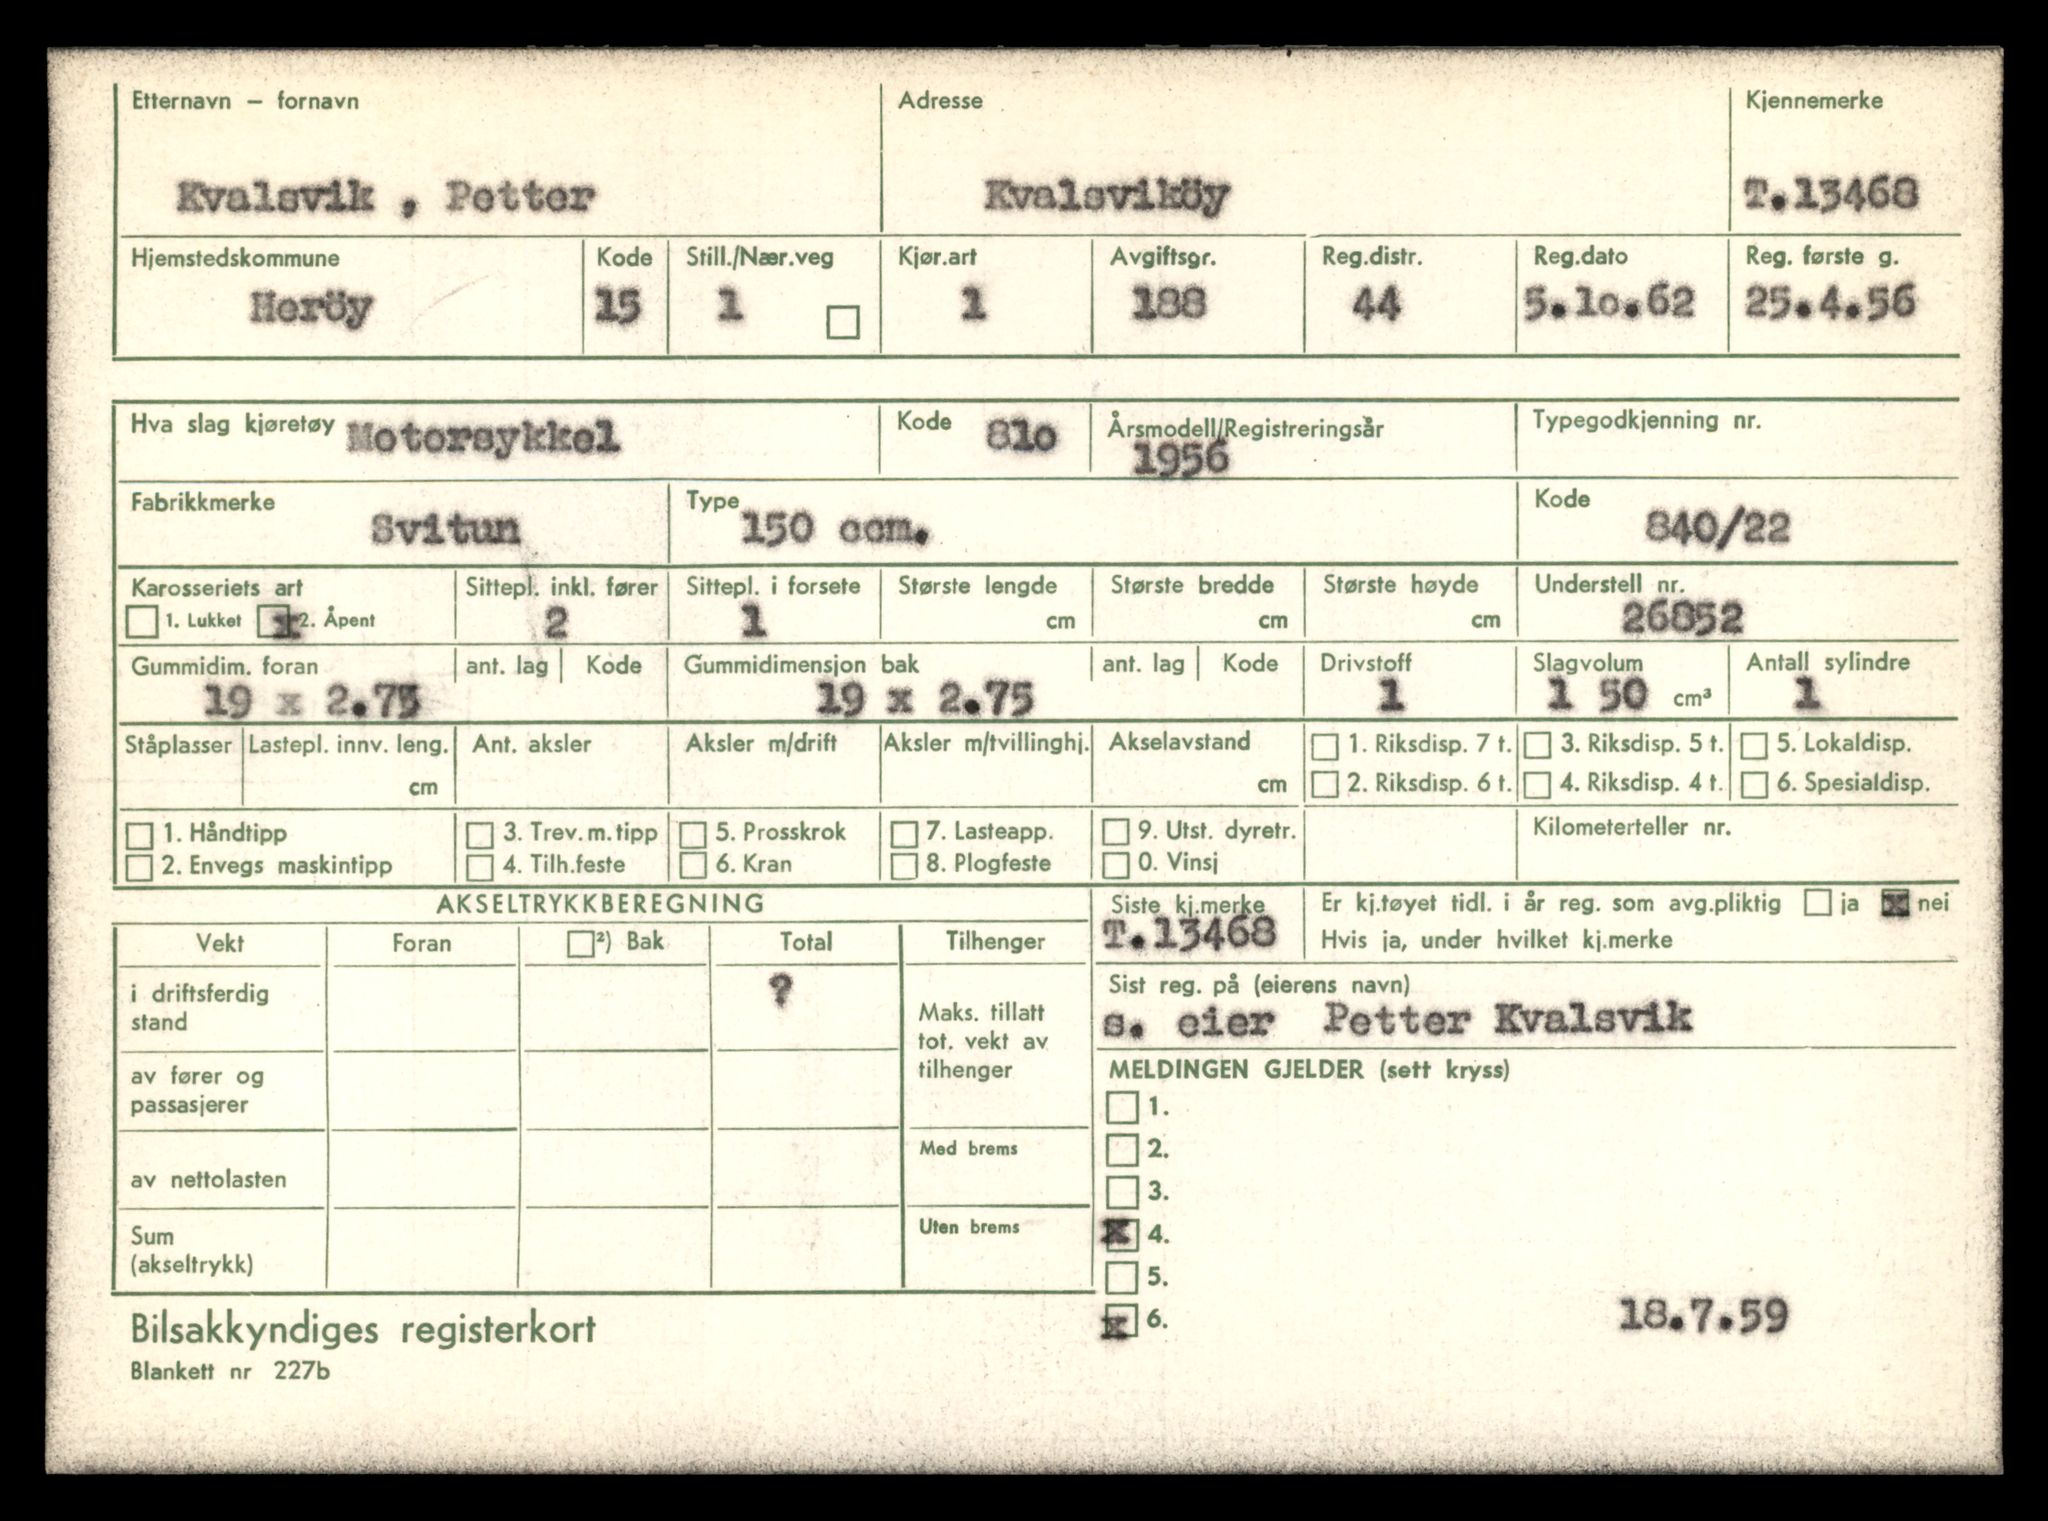 Etternavn – fornavn Adresse Kjennemerke
Kvalsvik , Petter Kvalsviköy T.13468
Hjemstedskommune Kode Still./Nær.veg Kjør.art Avgiftsgr. Reg.distr. Reg.dato Reg. første g.
Heröy 15 1 1 188 44 5.1o.62 25.4.56
Hva slag kjøretøy Motorsykkel Kode 81o Årsmodell/Registreringsår Typegodkjenning nr.
1956
Fabrikkmerke Type Kode
Svitun 150 ccm. 840/22
Karosseriets art Sittepl. inkl. fører Sittepl. i forsete Største lengde Største bredde Største høyde Understell nr.
1. Lukket x 2. Åpent 2 1 cm cm cm 26852
Gummidim. foran ant. lag Kode Gummidimensjon bak ant. lag Kode Drivstoff Slagvolum Antall sylindre
19 x 2.75 19 x 2.75 1 1 50 cm³ 1
Ståplasser Lastepl. innv. leng. Ant. aksler Aksler m/drift Aksler m/tvillinghj. Akselavstand 1. Riksdisp. 7 t. 3. Riksdisp. 5 t. 5. Lokaldisp.
cm cm 2. Riksdisp. 6 t. 4. Riksdisp. 4 t. 6. Spesialdisp.
1. Håndtipp 3. Trev. m. tipp 5. Prosskrok 7. Lasteapp. 9. Utst. dyretr. Kilometerteller nr.
2. Envegs maskintipp 4. Tilh.feste 6. Kran 8. Plogfeste 0. Vinsj
AKSELTRYKKBEREGNING Siste kj.merke Er kj.tøyet tidl. i år reg. som avg.pliktig ja x nei
T.13468 Hvis ja, under hvilket kj.merke
Vekt Foran ²) Bak Total Tilhenger
i driftsferdig stand ?
Maks. tillatt tot. vekt av tilhenger
Sist reg. på (eierens navn)
s. eier Petter Kvalsvik
av fører og passasjerer
MELDINGEN GJELDER (sett kryss)
1.
Med brems 2.
av nettolasten 3.
Uten brems x 4.
Sum (akseltrykk)
5.
x 6. 18.7.59
Bilsakkyndiges registerkort
Blankett nr 227b